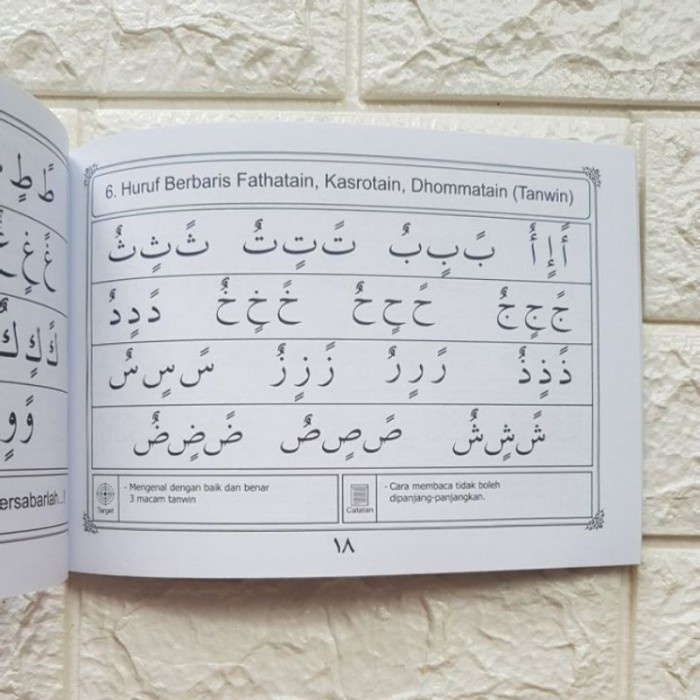 6. Huruf Berbaris Fathatain, Kasrotain, Dhommatain (Tanwin)
أً إٍ أٌ بً بٍ بٌ تً تٍ تٌ ثً ثٍ ثٌ
جً جٍ جٌ حً حٍ حٌ خً خٍ خٌ دً دٍ دٌ
ذً ذٍ ذٌ رً رٍ رٌ زً زٍ زٌ سً سٍ سٌ
شً شٍ شٌ صً صٍ صٌ ضً ضٍ ضٌ
Target
- Mengenal dengan baik dan benar
3 macam tanwin
Catatan
- Cara membaca tidak boleh
dipanjang-panjangkan.
١٨
طً طٍ
غً غٍ
كً كٍ كٌ
وً وٍ
ersabarlah...!